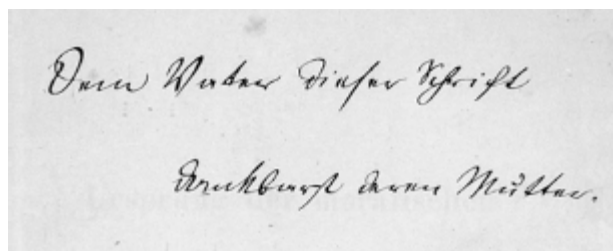 Dem Vater dieser Schrift
dankbarst deren Mutter.